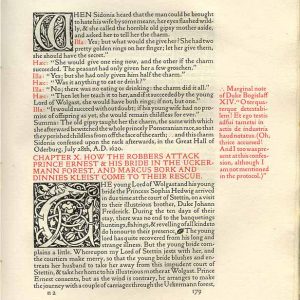 WHEN Sidonia heard that the man could be brought
to hate his wife by some means, her eyes flashed wild-
ly, & she called the horrible old gipsy mother aside,
and asked her to tell her the charm.
Illa: "Yes; but what would she give her? She had two
pretty golden rings on her finger; let her give them,
she should have the secret."
Hæc: "She would give one ring now, and the other if the charm
succeeded. The peasant had only given her a few groschen."
Illa: "Yes; but she had only given him half the charm."
Hæc: "Was it anything to eat or drink?"
Illa: "No; there was no eating or drinking: the charm did it all."
Hæc: "Then let her teach it to her, and if it succeeded by the young
Lord of Wolgast, she would have both rings; if not, but one."
Illa: "It would succeed without doubt; if his young wife had no pro-
mise of offspring as yet, she would remain childless for ever."
Summa: The old gipsy taught her the charm, the same with which
she afterward bewitched the whole princely Pomeranian race, so that
they perished childless from off the face of the earth; and this charm
Sidonia confessed upon the rack afterwards, in the Great Hall of
Oderburg, July 28th, A.D. 1620.
Marginal note
of Duke Bogislaff
XIV "O tempora
This was
present at this confes-
sion, although I
am not mentioned
in the protocol.)"
CHAPTER X. HOW THE ROBBERS ATTACK
PRINCE ERNEST & HIS BRIDE IN THE UCKER-
MANN FOREST, AND MARCUS BORK AND
DINNIES KLEIST COME TO THEIR RESCUE.
THE young Lord of Wolgast and his young
bride the Princess Sophia Hedwig arrived
in due time at the court of Stettin, on a visit
to their illustrious brother, Duke Johann
Frederick. During the ten days of their
stay, there was no end to the banquetings
huntings, fishings, & revelling of all kinds to do
honour to their presence. The young
lord has quite recovered from his long and
strange illness. But the young bride com-
plains a little. Whereupon my Lord of Stettin jests with her, and
the courtiers make merry, so that the young bride blushes and en-
treats her husband to take her away from this impudent court of
Stettin, & take her home to his illustrious mother at Wolgast. Prince
Ernest consents, but as the wind is contrary, he arranges to make
the journey with a couple of carriages through the Uckermann forest,
n 2 179